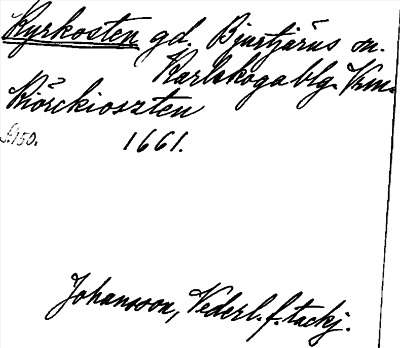 Kyrkosten gd. Bjurtjärns sn.
Karlskoga blg. Vrm.
Kiörckioszten
s. 150. 1661.
Johansson, Nederl. f. tackj.